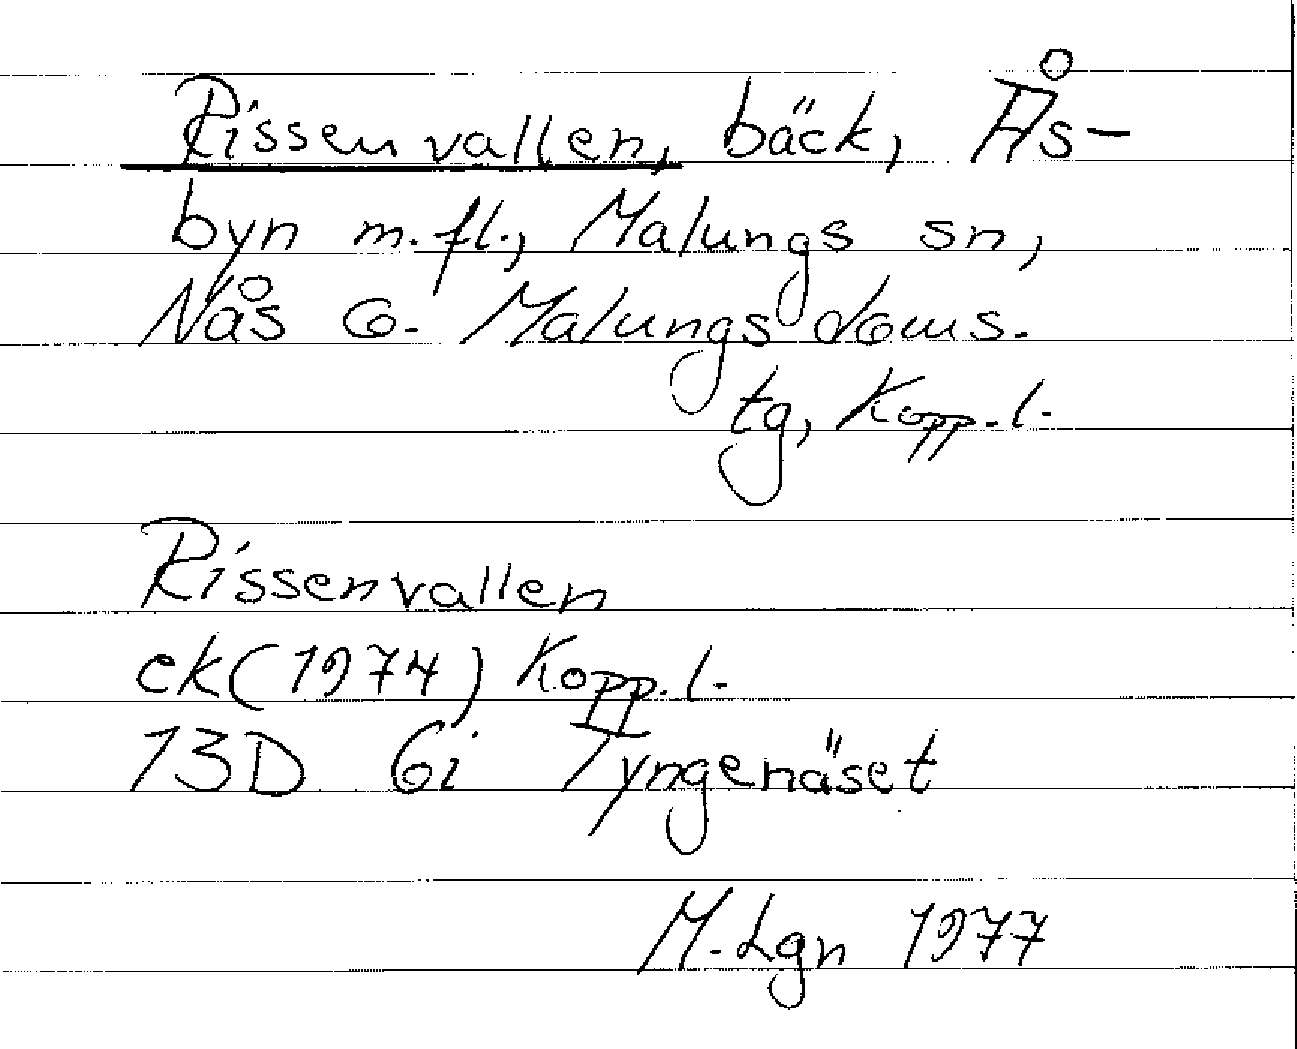 Rissenvallen, bäck, Ås-
byn m.fl., Malungs sn,
Nås o. Malungs doms.
tg, Kopp.l.
Rissenvallen
ek(1974) Kopp.l.
13D 6i Tyngenäset
M.Lgn 1977